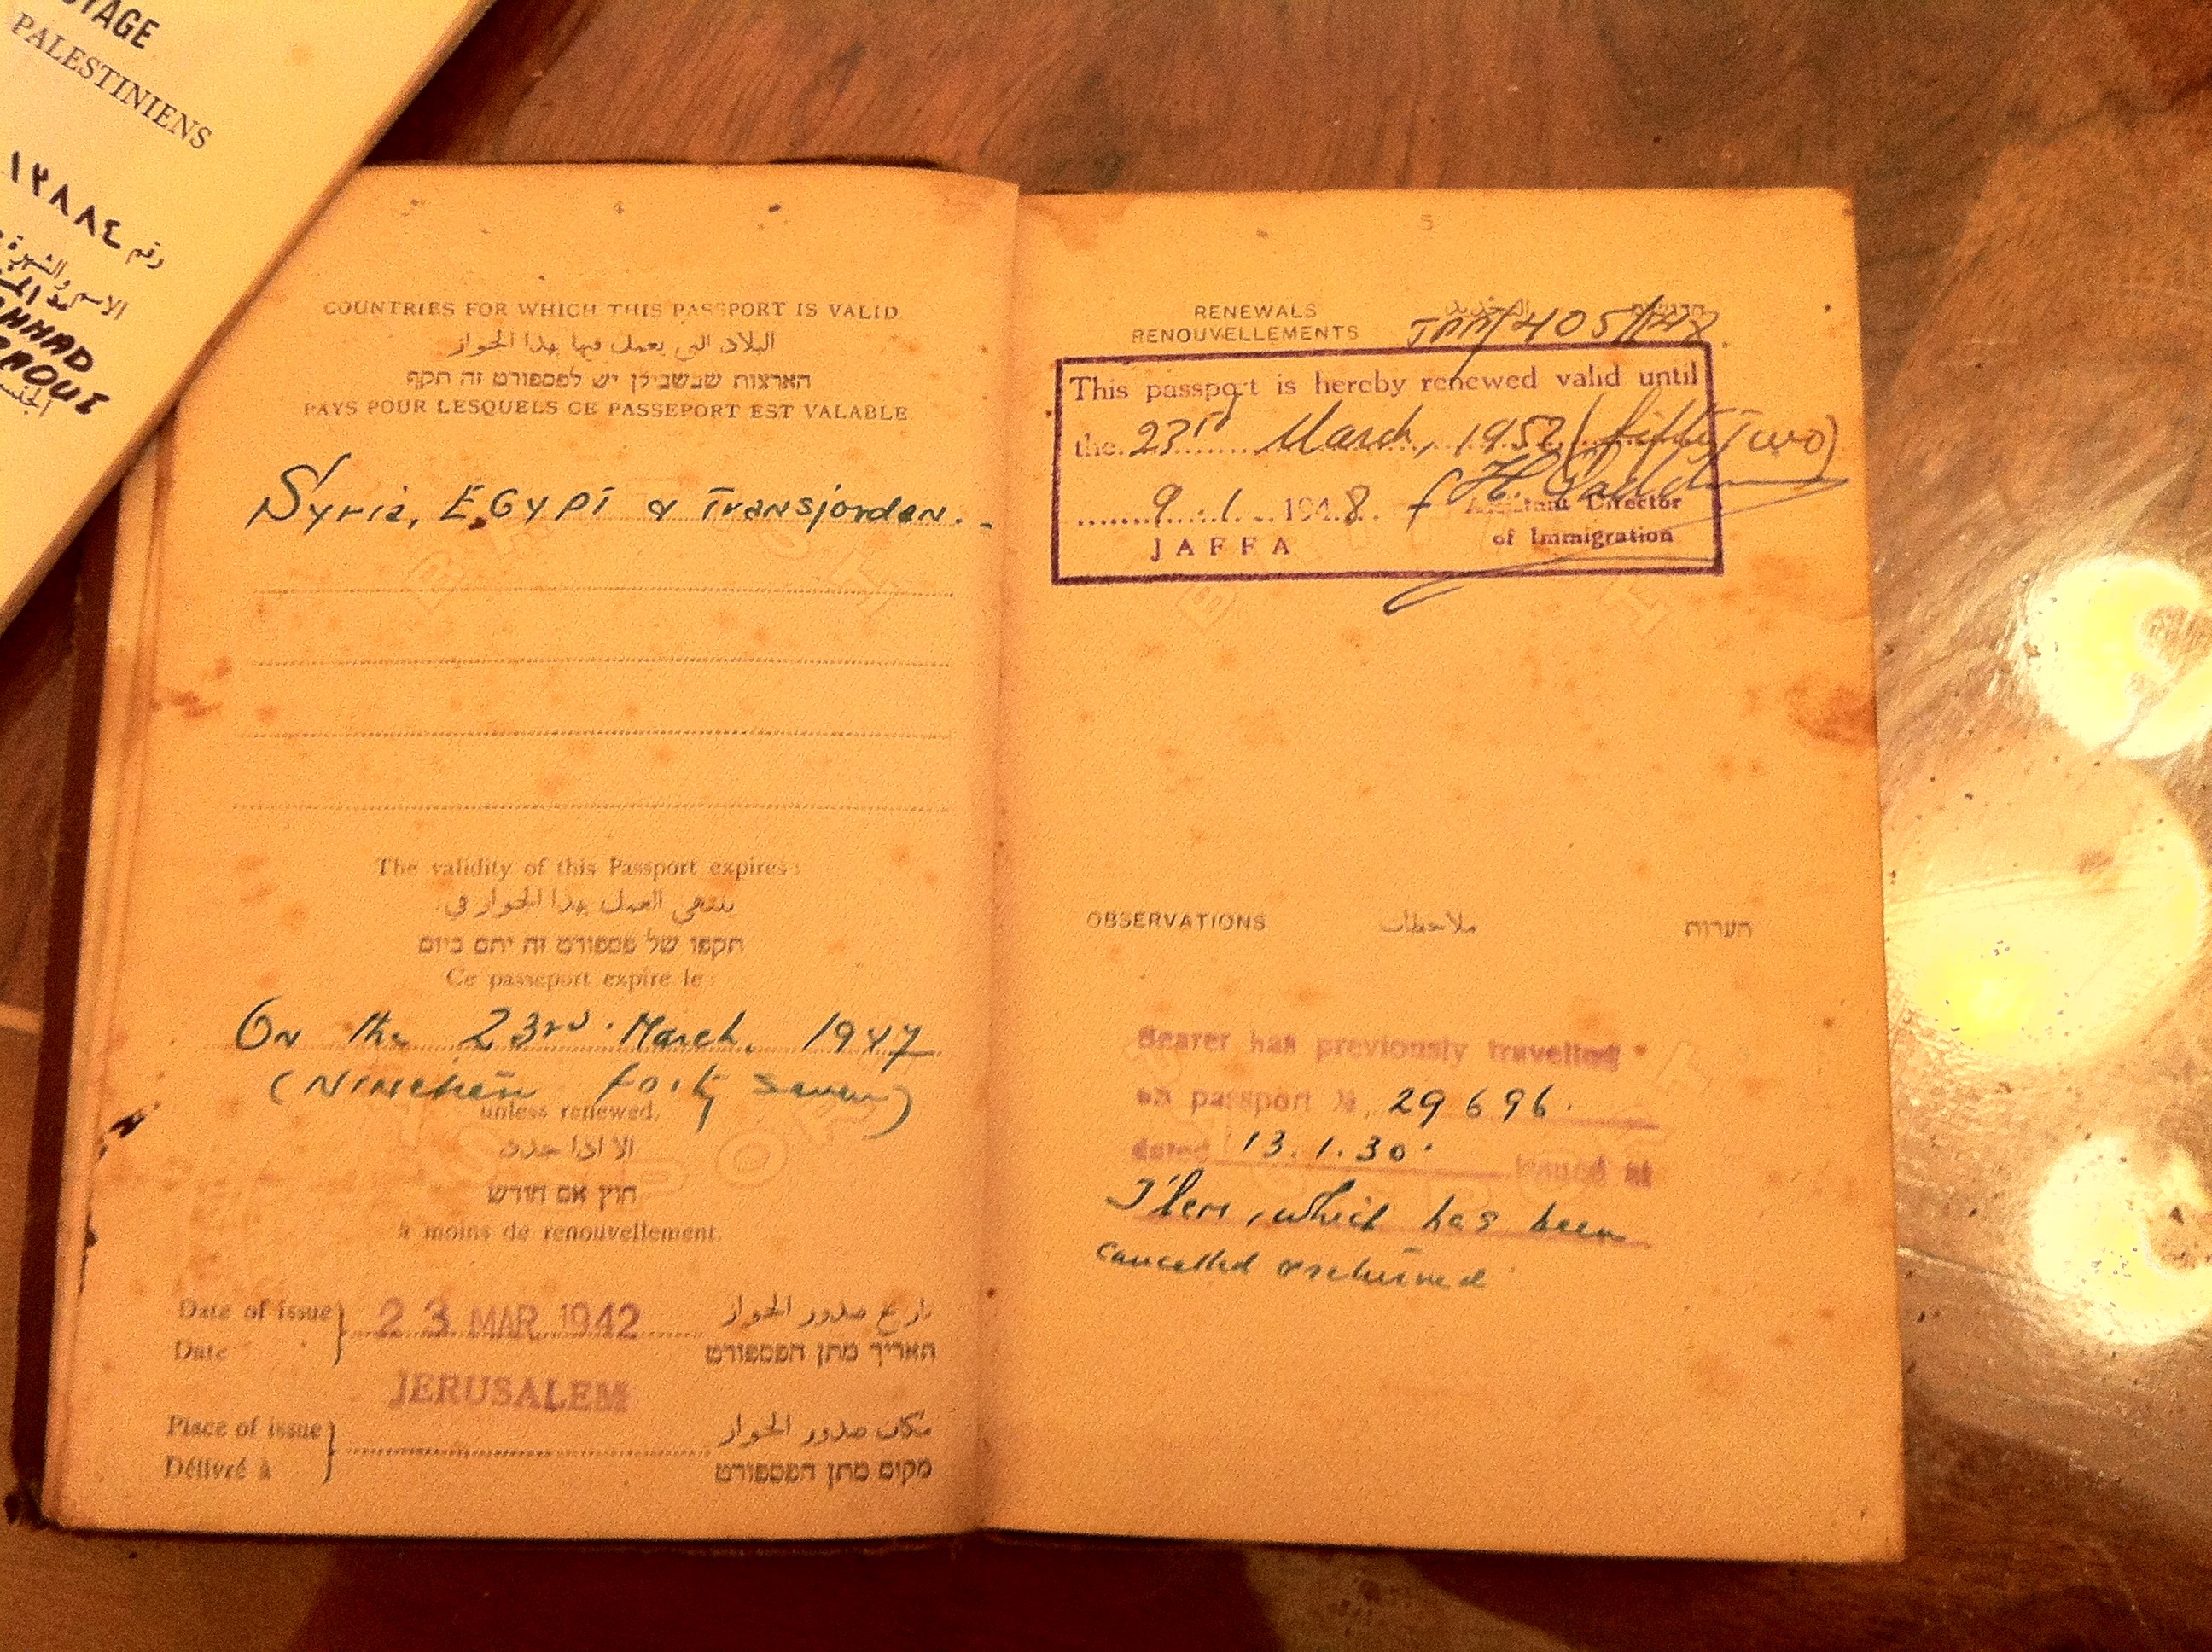 PALESTINIENS
١٢٨٨٤ رقم
الاسم والشهرة
COUNTRIES FOR WHICH THIS PASSPORT IS VALID
البلاد التي يعمل فيها بهذا الجواز
הארצות שבשבילן יש לפספורט זה תקף
PAYS POUR LESQUELS CE PASSEPORT EST VALABLE
Syria, EGYPT & Transjordan.
The validity of this Passport expires:
ينتهي العمل بهذا الجواز في:
תקפו של פספורט זה יתם ביום
Ce passeport expire le:
On the 23rd. March. 1947
(Nineteen forty seven)
unless renewed.
الا اذا جدد
חוץ אם חודש
à moins de renouvellement.
Date of issue
Date
23 MAR 1942
تاريخ صدور الجواز
תאריך מתן הפספורט
JERUSALEM
Place of issue
Délivré à
مكان صدور الجواز
מקום מתן הפספורט
5
RENEWALS
RENOUVELLEMENTS
This passport is hereby renewed valid until
the 23rd March, 1952 (fifty Two)
9.1.1948.
Assistant Director
JAFFA of Immigration
OBSERVATIONS ملاحظات הערות
Bearer has previously travelled
on passport № 29696.
dated 13.1.30. issued at
which has been
cancelled & returned
BRITISH